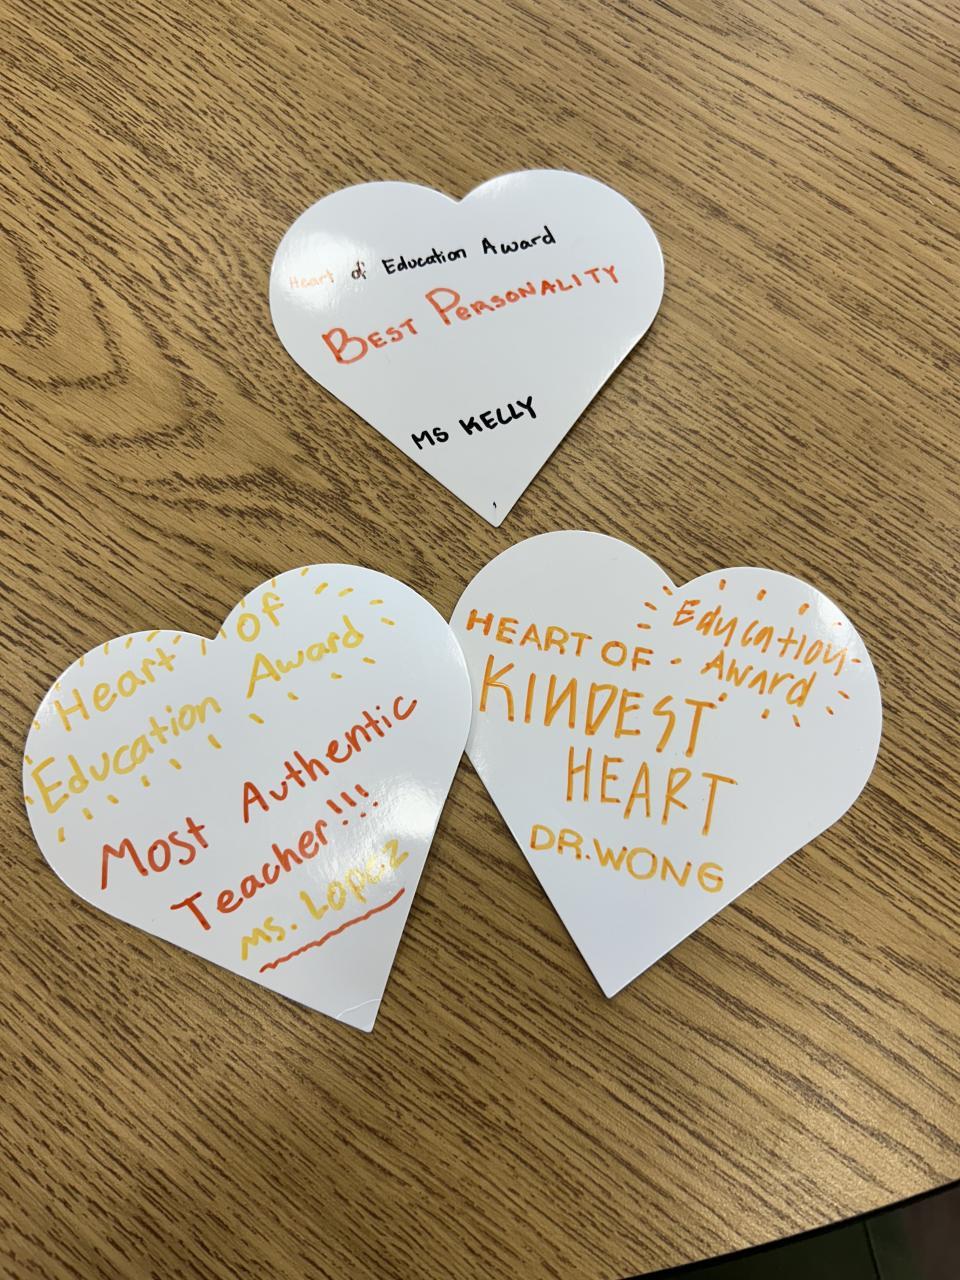 Heart of Education Award
BEST PERSONALITY
MS KELLY
Heart of
Education Award
Most Authentic
Teacher!!!
Ms. Lopez
HEART OF
Education
Award
KINDEST
HEART
DR. WONG